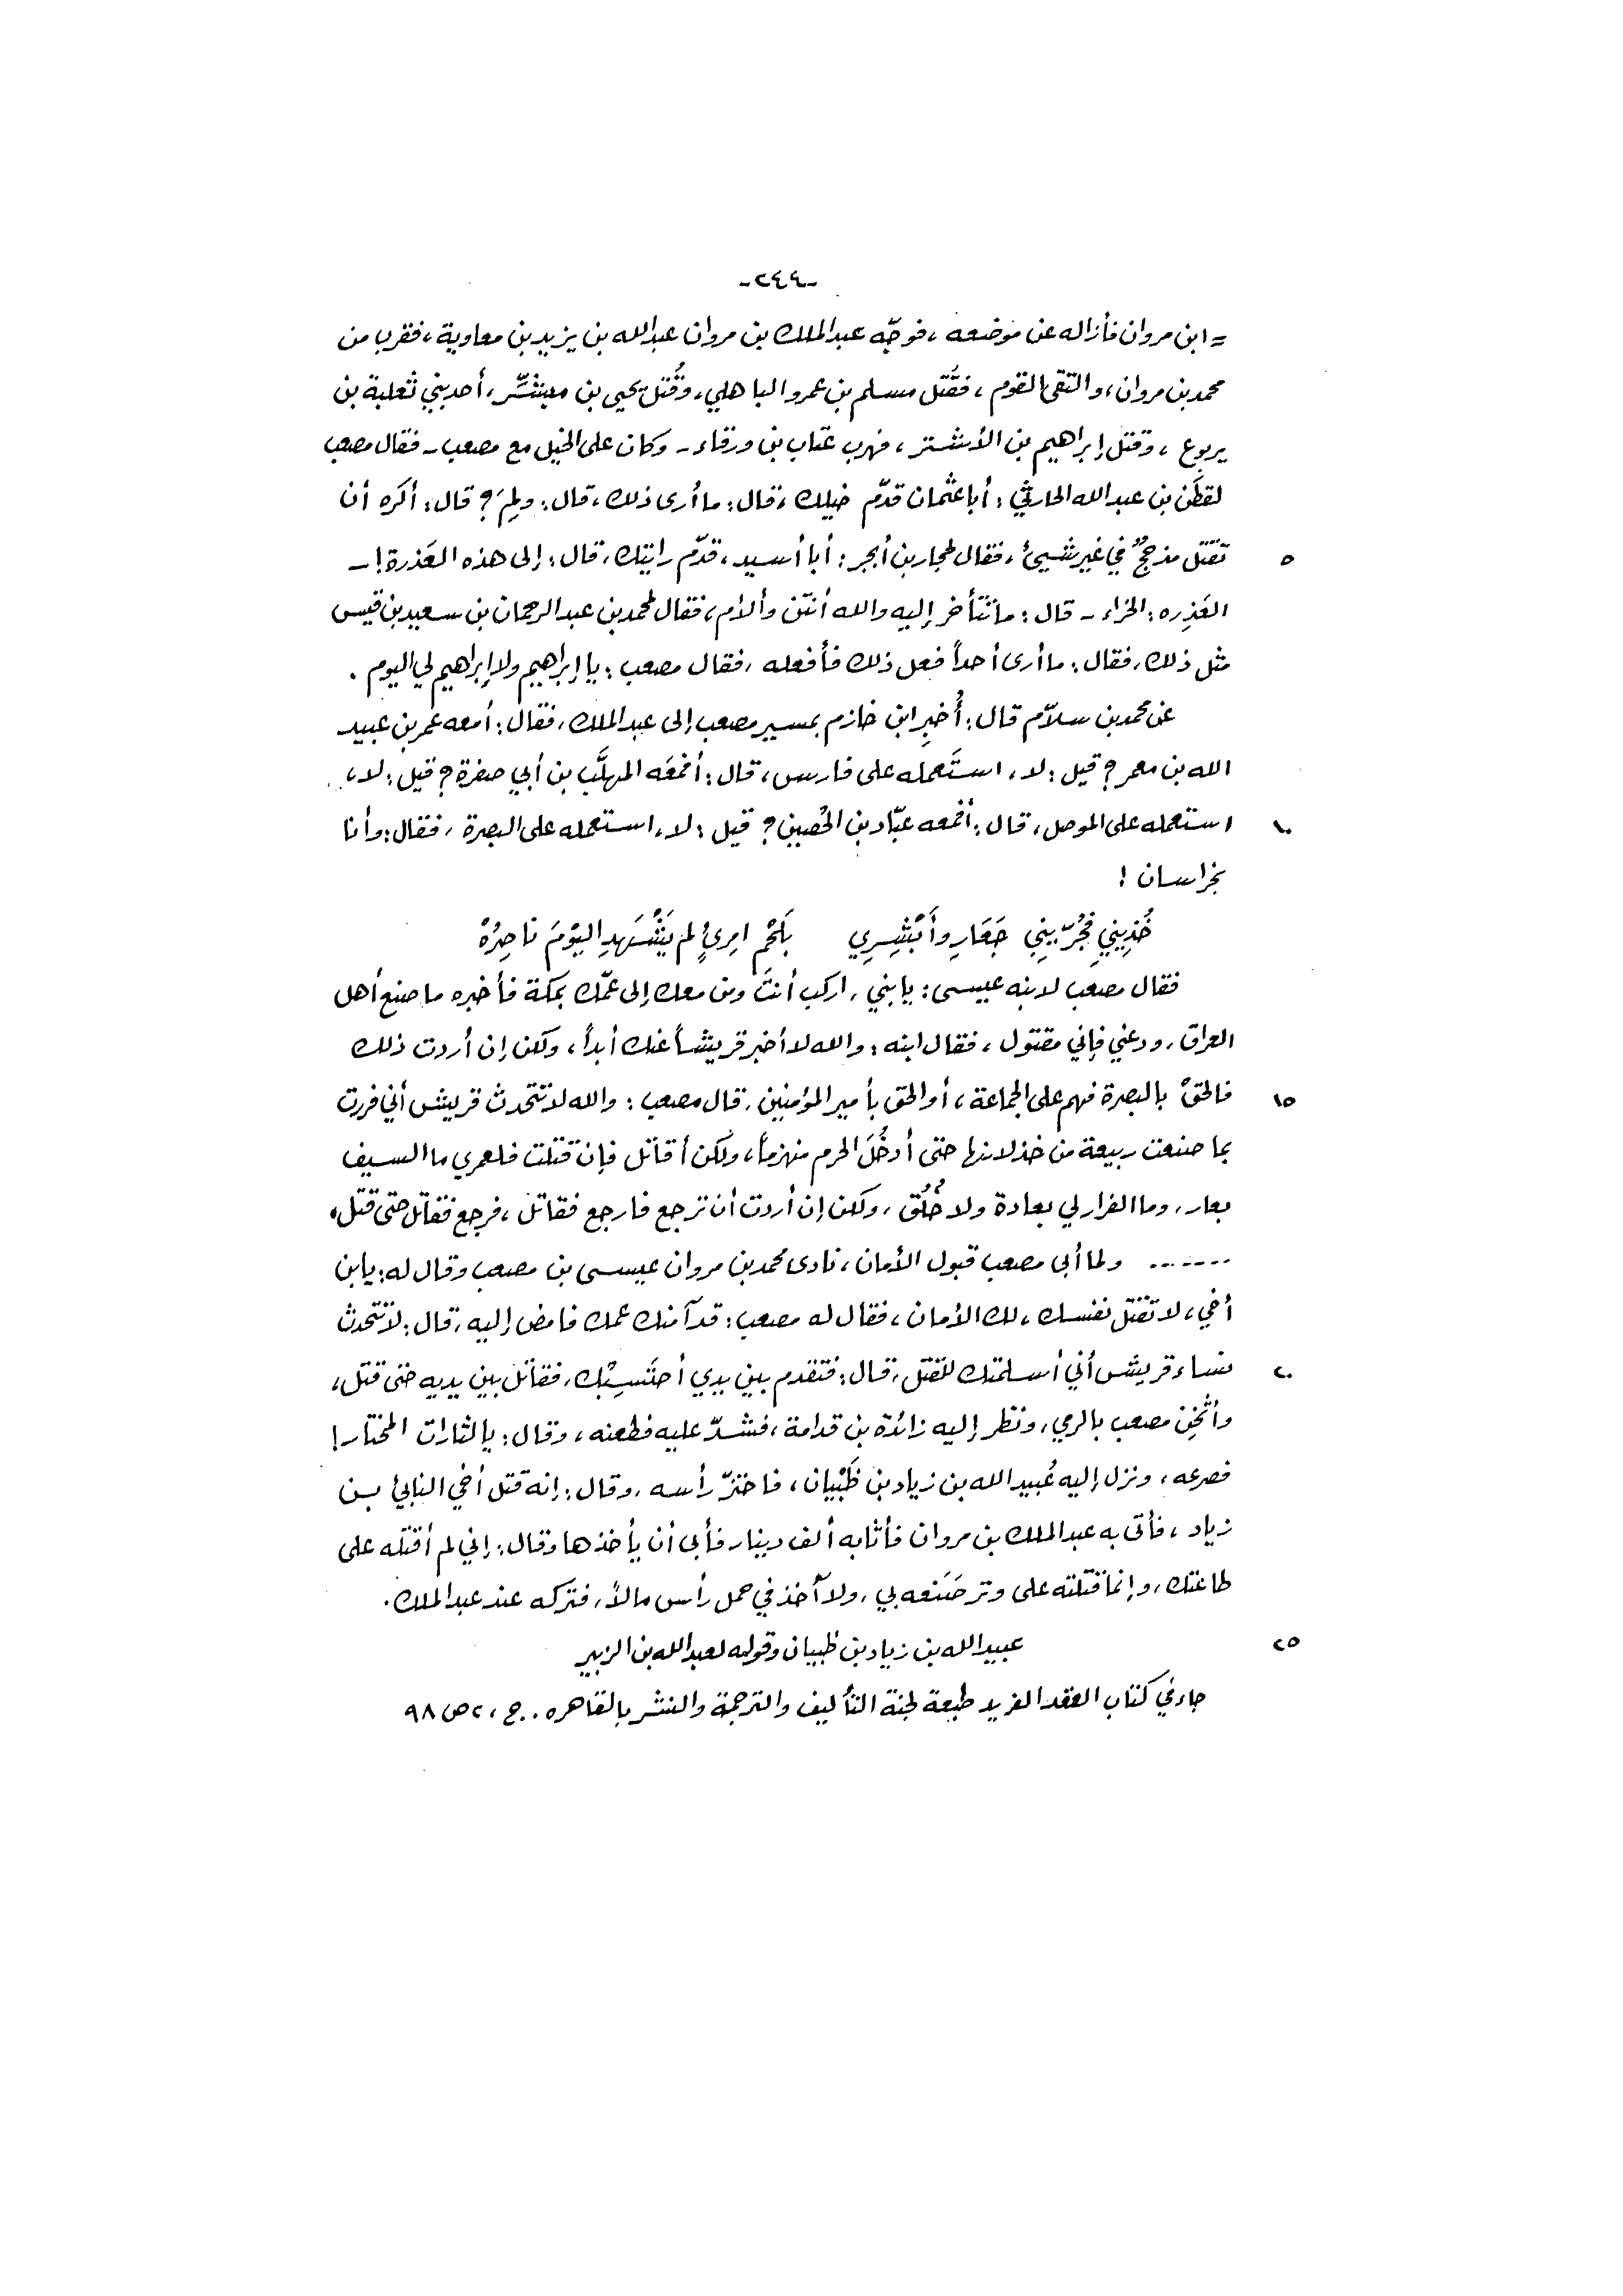 -٢٤٤-
= ابن مروان فأزاله عن موضعه، فوجّه عبدالملك بن مروان عبدالله بن يزيد بن معاوية، فقرب من
محمد بن مروان، والتقى القوم، فقُتل مسلم بن عمرو الباهلي، وقُتل يحيى بن مبشّر، أحد بني ثعلبة بن
يربوع، وقتل إبراهيم بن الأشتر، فهرب عتاب بن ورقاء - وكان على الخيل مع مصعب - فقال مصعب
لقطَن بن عبد الله الحارثي: أبا عثمان قدّم خيلك، قال: ما أرى ذلك، قال: ولِمَ؟ قال: أكره أن
٥ تقتل مذحجٌ في غير شيئ، فقال لحجار بن أبجر: أبا أسيد، قدّم رايتك، قال: إلى هذه العَذرة! -
العَذِره: الخراء - قال: ما تتأخر إليه والله أنتن وألأم، فقال لمحمد بن عبد الرحمان بن سعيد بن قيس
مثل ذلك، فقال: ما أرى أحداً فعل ذلك فأفعله، فقال مصعب: يا إبراهيم ولا إبراهيم لي اليوم.
عن محمد بن سلاّم قال: أُخبِر ابن خازم بمسير مصعب إلى عبد الملك، فقال: أمعه عمر بن عبيد
الله بن معمر؟ قيل: لا، استَعمله على فارس، قال: أفمعَه المهلَّب بن أبي صفرة؟ قيل: لا،
١٠ استعمله على الموصل، قال: أفمعه عبّاد بن الحُصين؟ قيل: لا، استعمله على البصرة، فقال: وأنا
بخراسان!
خُذِيِنيِ فَجُرّيِنِي جَعَارِ وأَبْشِرِي بَلَحْمِ امرِئٍ لم يَشْهَدِ اليَوْمَ نَاصِرُهْ
فقال مصعب لابنه عيسى: يا بني، اركب أنتَ ومن معك إلى عمّك بمكة فأخبره ما صنع أهل
العراق، ودعني فإني مقتول، فقال ابنه: والله لا أخبر قريشاً عنك أبداً، ولكن إن أردت ذلك
١٥ فالحقْ بالبصرة فهم على الجماعة، أو الحق بأمير المؤمنين، قال مصعب: والله لا تتحدث قريش أني فررت
بما صنعت ربيعة من خذلانها حتى أدخُلَ الحرم منهزماً، ولكن أقاتل فإن قتلت فلعمري ما السيف
بعار، وما الفرار لي بعادة ولا خُلُق، ولكن إن أردت أن ترجع فارجع فقاتل، فرجع فقاتل حتى قتل،
....... ولما أبى مصعب قبول الأمان، نادى محمد بن مروان عيسى بن مصعب وقال له: يا بن
أخي، لا تقتل نفسك، لك الأمان، فقال له مصعب: قد آمنك عمك فامض إليه، قال: لا تتحدث
٢٠ نساء قريش أني أسلمتك للقتل، قال: فتقدم بين يدي أحتَسِبْك، فقاتل بين يديه حتى قتل،
وأثخِن مصعب بالرمي، ونظر إليه زائدة بن قدامة، فشدّ عليه فطعنه، وقال: يا لثارات المختار!
فصرعه، ونزل إليه عُبيد الله بن زياد بن ظَبْيان، فاحتزّ رأسه، وقال: إنه قتل أخي النابئ بن
زياد، فأتى به عبد الملك بن مروان فأثابه ألف دينار فأبى أن يأخذها وقال: إني لم أقتله على
طاعتك، وإنما قتلته على وتر صَنَعه بي، ولا آخذ في حمل رأس مالاً، فتركه عند عبد الملك.
٢٥ عبيد الله بن زياد بن ظبيان وقوله لعبد الله بن الزبير
جاء في كتاب العقد الفريد طبعة لجنة التأليف والترجمة والنشر بالقاهره.. ج، ٢ ص ٩٨